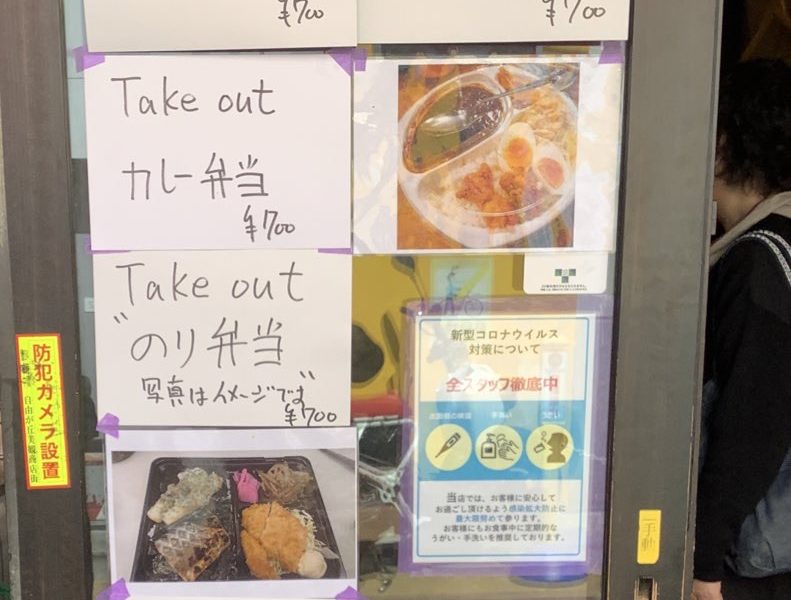 ¥700
¥700
Take out
カレー弁当
¥700
Take out
"のり弁当"
写真はイメージです
¥700
新型コロナウイルス
対策について
全スタッフ徹底中
出勤前の検温
手洗い
うがい
当店では、お客様に安心して
お過ごし頂けるよう感染拡大防止に
最大限努めて参ります。
お客様にもお食事中に定期的な
うがい・手洗いを推奨しております。
防犯カメラ設置
自由が丘美観商店街
手動